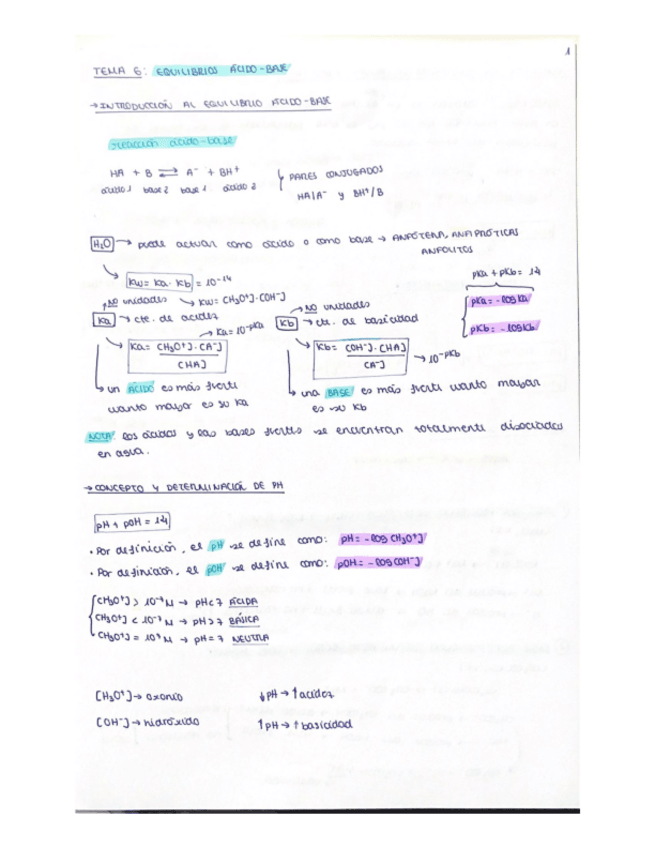 1
TEMA 6: EQUILIBRIOS ÁCIDO-BASE
→ INTRODUCCIÓN AL EQUILIBRIO ÁCIDO-BASE
reacción ácido-base
HA + B ⇌ A⁻ + BH⁺
ácido 1 base 2 base 1 ácido 2
PARES CONJUGADOS
HA/A⁻ y BH⁺/B
H₂O → puede actuar como ácido o como base → ANFÓTERA, ANFIPRÓTICAS
ANFOLITOS
Kw = Ka · Kb = 10⁻¹⁴
pKa + pKb = 14
NO unidades
Kw = [H₃O⁺]·[OH⁻]
pKa = - log Ka
pKb = - log Kb
Ka → cte. de acidez
Ka = 10⁻ᵖᴷᵃ
NO unidades
Kb → cte. de basicidad
Ka = [H₃O⁺]·[A⁻]
[HA]
Kb = [OH⁻]·[HA]
[A⁻]
→ 10⁻ᵖᴷᵇ
un ÁCIDO es más fuerte
cuanto mayor es su Ka
una BASE es más fuerte cuanto mayor
es su Kb
NOTA: los ácidos y las bases fuertes se encuentran totalmente disociados
en agua.
→ CONCEPTO Y DETERMINACIÓN DE PH
pH + pOH = 14
· Por definición, el pH se define como: pH = - log [H₃O⁺]
· Por definición, el pOH se define como: pOH = - log [OH⁻]
[H₃O⁺] > 10⁻⁷ M → pH < 7 ÁCIDA
[H₃O⁺] < 10⁻⁷ M → pH > 7 BÁSICA
[H₃O⁺] = 10⁻⁷ M → pH = 7 NEUTRA
[H₃O⁺] → oxonio
↓ pH → ↑ acidez
[OH⁻] → hidróxido
↑ pH → ↑ basicidad